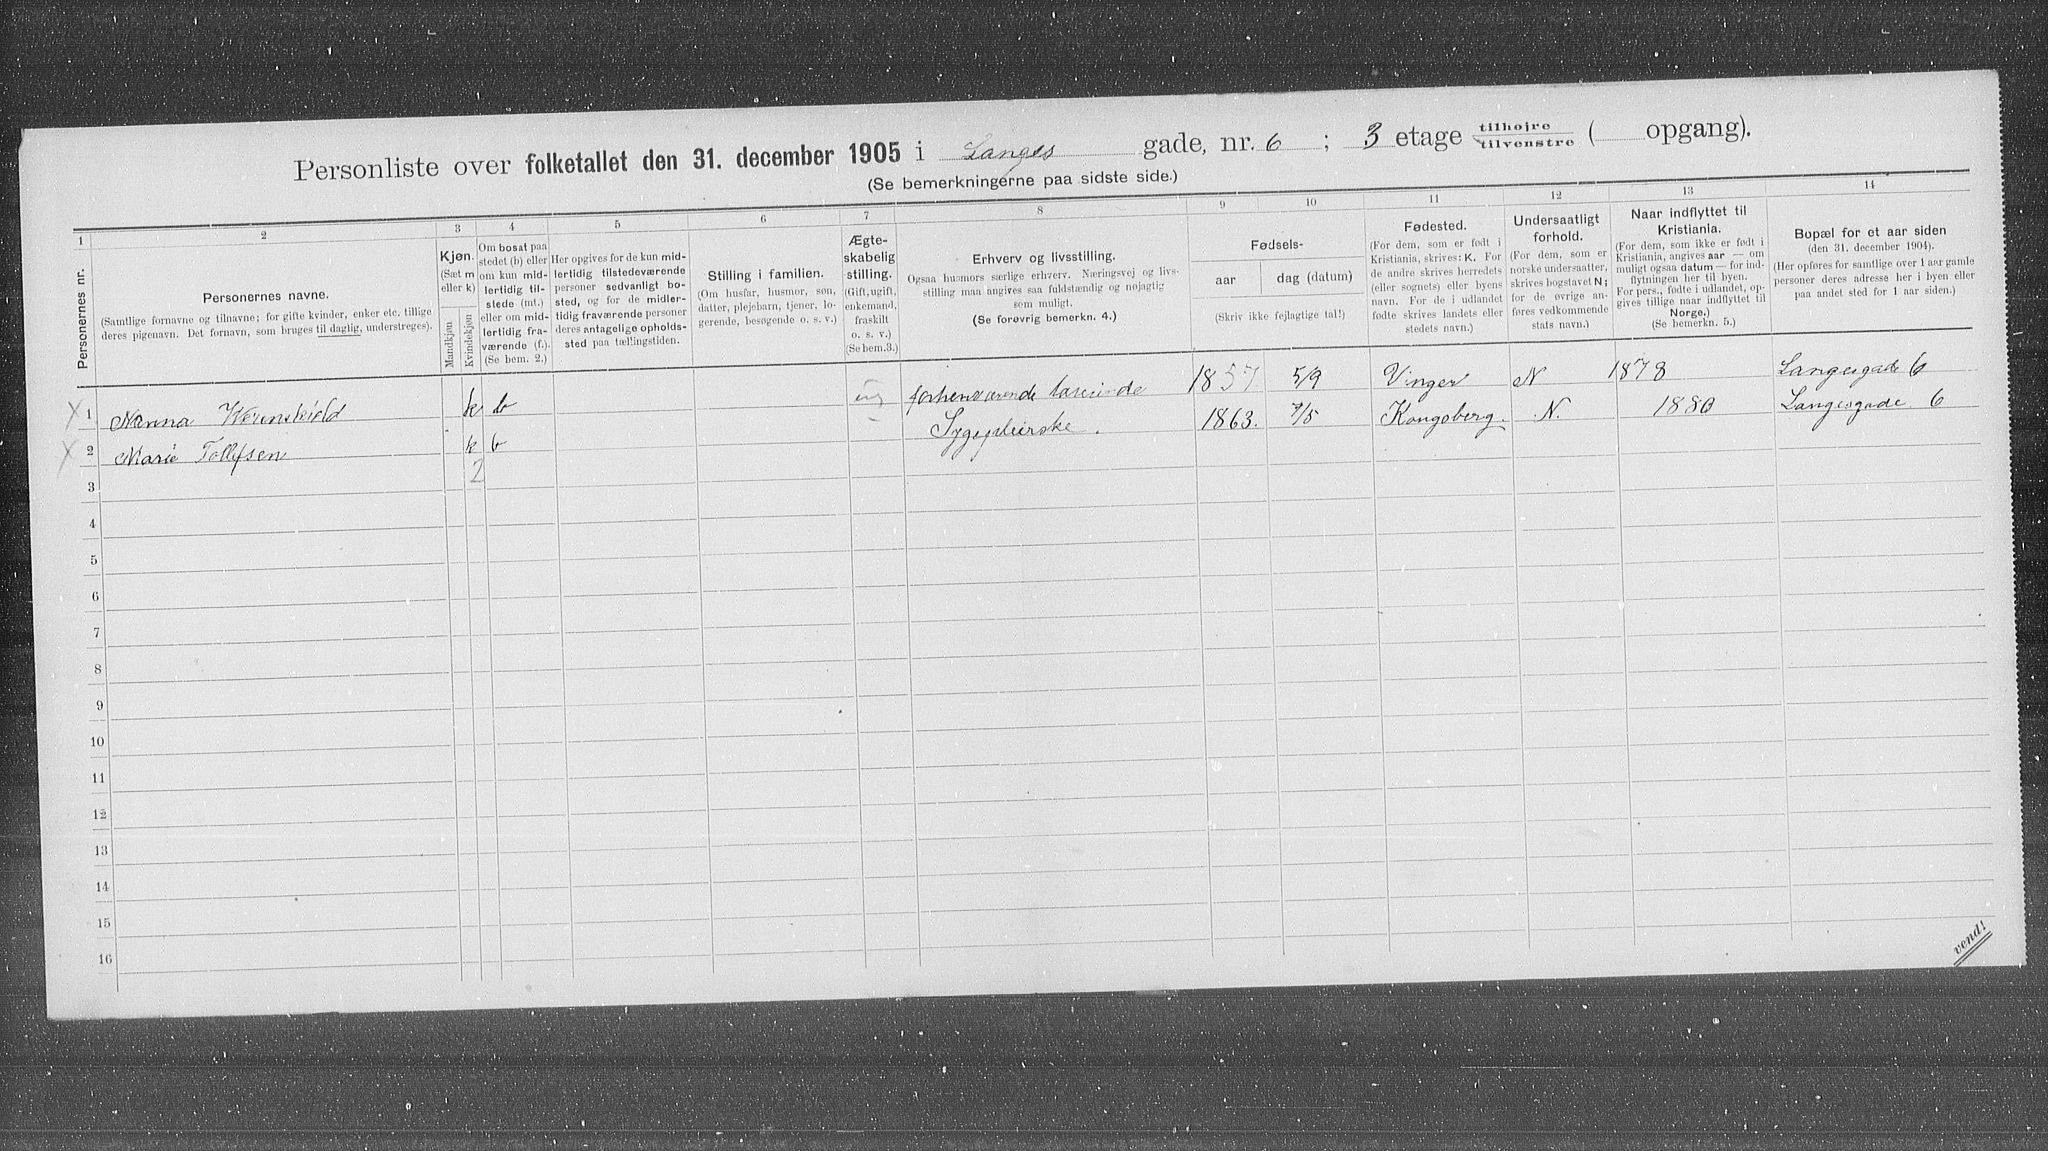 Personliste over folketallet den 31. december 1905 i Langes gade, nr. 6 ; 3 etage tilhøjre / tilvenstre ( opgang).
(Se bemerkningerne paa sidste side.)
1 2 3 4 5 6 7 8 9 10 11 12 13 14
Personernes nr.
Personernes navne.
(Samtlige fornavne og tilnavne; for gifte kvinder, enker etc. tillige
deres pigenavn. Det fornavn, som bruges til daglig, understreges).
Kjøn.
(Sæt m
eller k)
Mandkjøn
Kvindekjøn
Om bosat paa
stedet (b) eller
om kun mid-
lertidig til-
stede (mt.)
eller om mid-
lertidig fra-
værende (f.).
(Se bem. 2.)
Her opgives for de kun mid-
lertidig tilstedeværende
personer sedvanligt bo-
sted, og for de midler-
tidig fraværende personer
deres antagelige opholds-
sted paa tællingstiden.
Stilling i familien.
(Om husfar, husmor, søn,
datter, plejebarn, tjener, lo-
gerende, besøgende o. s. v.)
Ægte-
skabelig
stilling.
(Gift, ugift,
enkemand,
fraskilt
o. s. v.)
(Se bem.3.)
Erhverv og livsstilling.
Ogsaa husmors særlige erhverv. Næringsvej og livs-
stilling maa angives saa fuldstændig og nøjagtig
som muligt.
(Se forøvrig bemerkn. 4.)
Fødsels-
aar dag (datum)
(Skriv ikke fejlagtige tal!)
Fødested.
(For dem, som er født i
Kristiania, skrives: K. For
de andre skrives herredets
(eller sognets) eller byens
navn. For de i udlandet
fødte skrives landets eller
stedets navn.)
Undersaatligt
forhold.
(For dem, som er
norske undersaatter,
skrives bogstavet N;
for de øvrige an-
føres vedkommende
stats navn.)
Naar indflyttet til
Kristiania.
(For dem, som ikke er født i
Kristiania, angives aar — om
muligt ogsaa datum — for ind-
flytningen her til byen.
For pers., fødte i udlandet, op-
gives tillige naar indflyttet til
Norge.)
(Se bemerkn. 5.)
Bopæl for et aar siden
(den 31. december 1904).
(Her opføres for samtlige over 1 aar gamle
personer deres adresse her i byen eller
paa andet sted for 1 aar siden.)
1 Nanna Werenskiold k b ug forhenværende lærerinde 1857 5/9 Vinger N 1878 Langesgade 6
2 Marie Tollefsen k b Sygepleierske. 1863. 7/5 Kongsberg. N. 1880 Langesgade 6
3 2
4
5
6
7
8
9
10
11
12
13
14
15
16
vend!